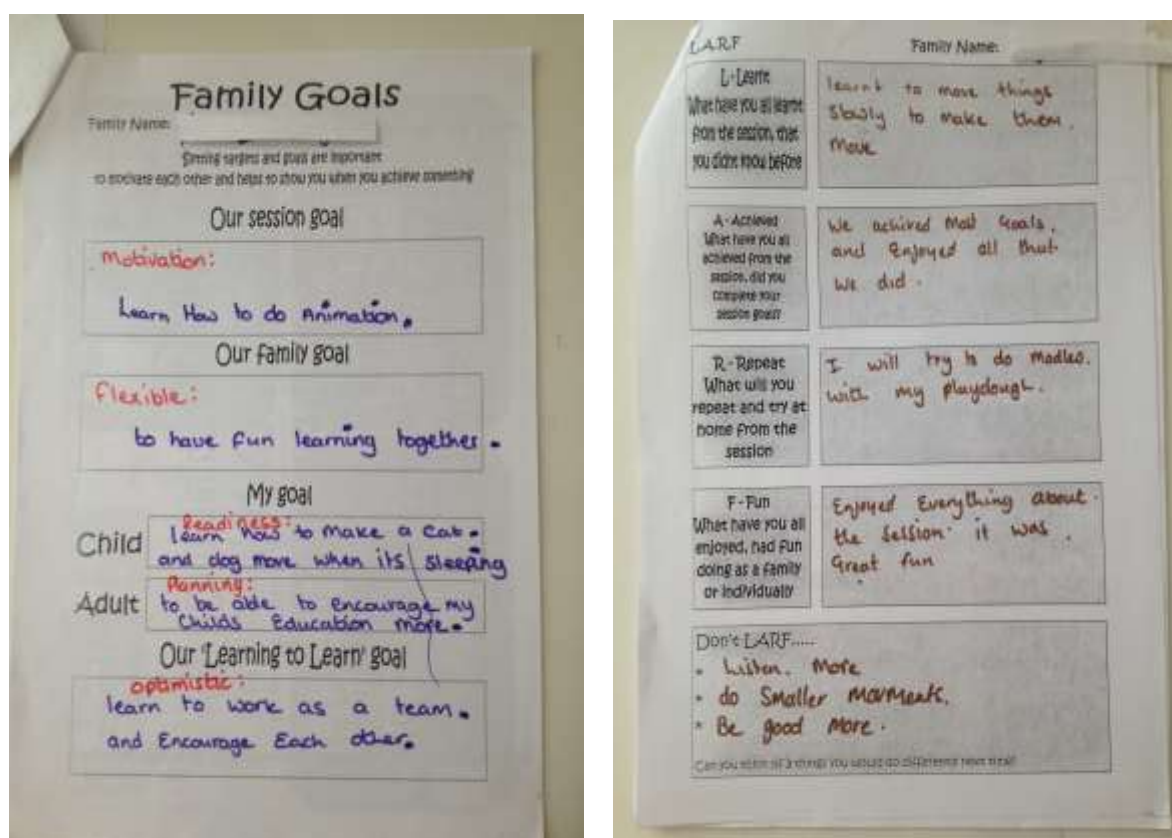 Family Goals
Family Name:
Setting targets and goals are important
to motivate each other and helps to show you when you achieve something
Our session goal
Motivation:
Learn How to do Animation.
Our family goal
Flexible:
to have fun learning together.
My goal
Child
Readiness:
learn how to make a cat.
and dog move when its sleeping
Adult
Planning:
to be able to encourage my
Childs Education more.
Our 'Learning to Learn' goal
optimistic:
learn to work as a team.
and Encourage Each other.
L.A.R.F
Family Name:
L - Learnt
What have you all learnt
from the session, that
you didnt know before
learnt to move things
slowly to make them.
move
A - Achieved
What have you all
achieved from the
session, did you
complete your
session goals?
We achived most Goals.
and Enjoyed all that
We did.
R - Repeat
What will you
repeat and try at
home from the
session
I will try to do modles.
with my playdough.
F - Fun
What have you all
enjoyed, had fun
doing as a family
or individually
Enjoyed Everything about.
the Session. it was.
Great fun
Don't LARF.....
• Listen. More
• do Smaller movments.
• Be good More.
Can you think of 3 things you would do different next time?